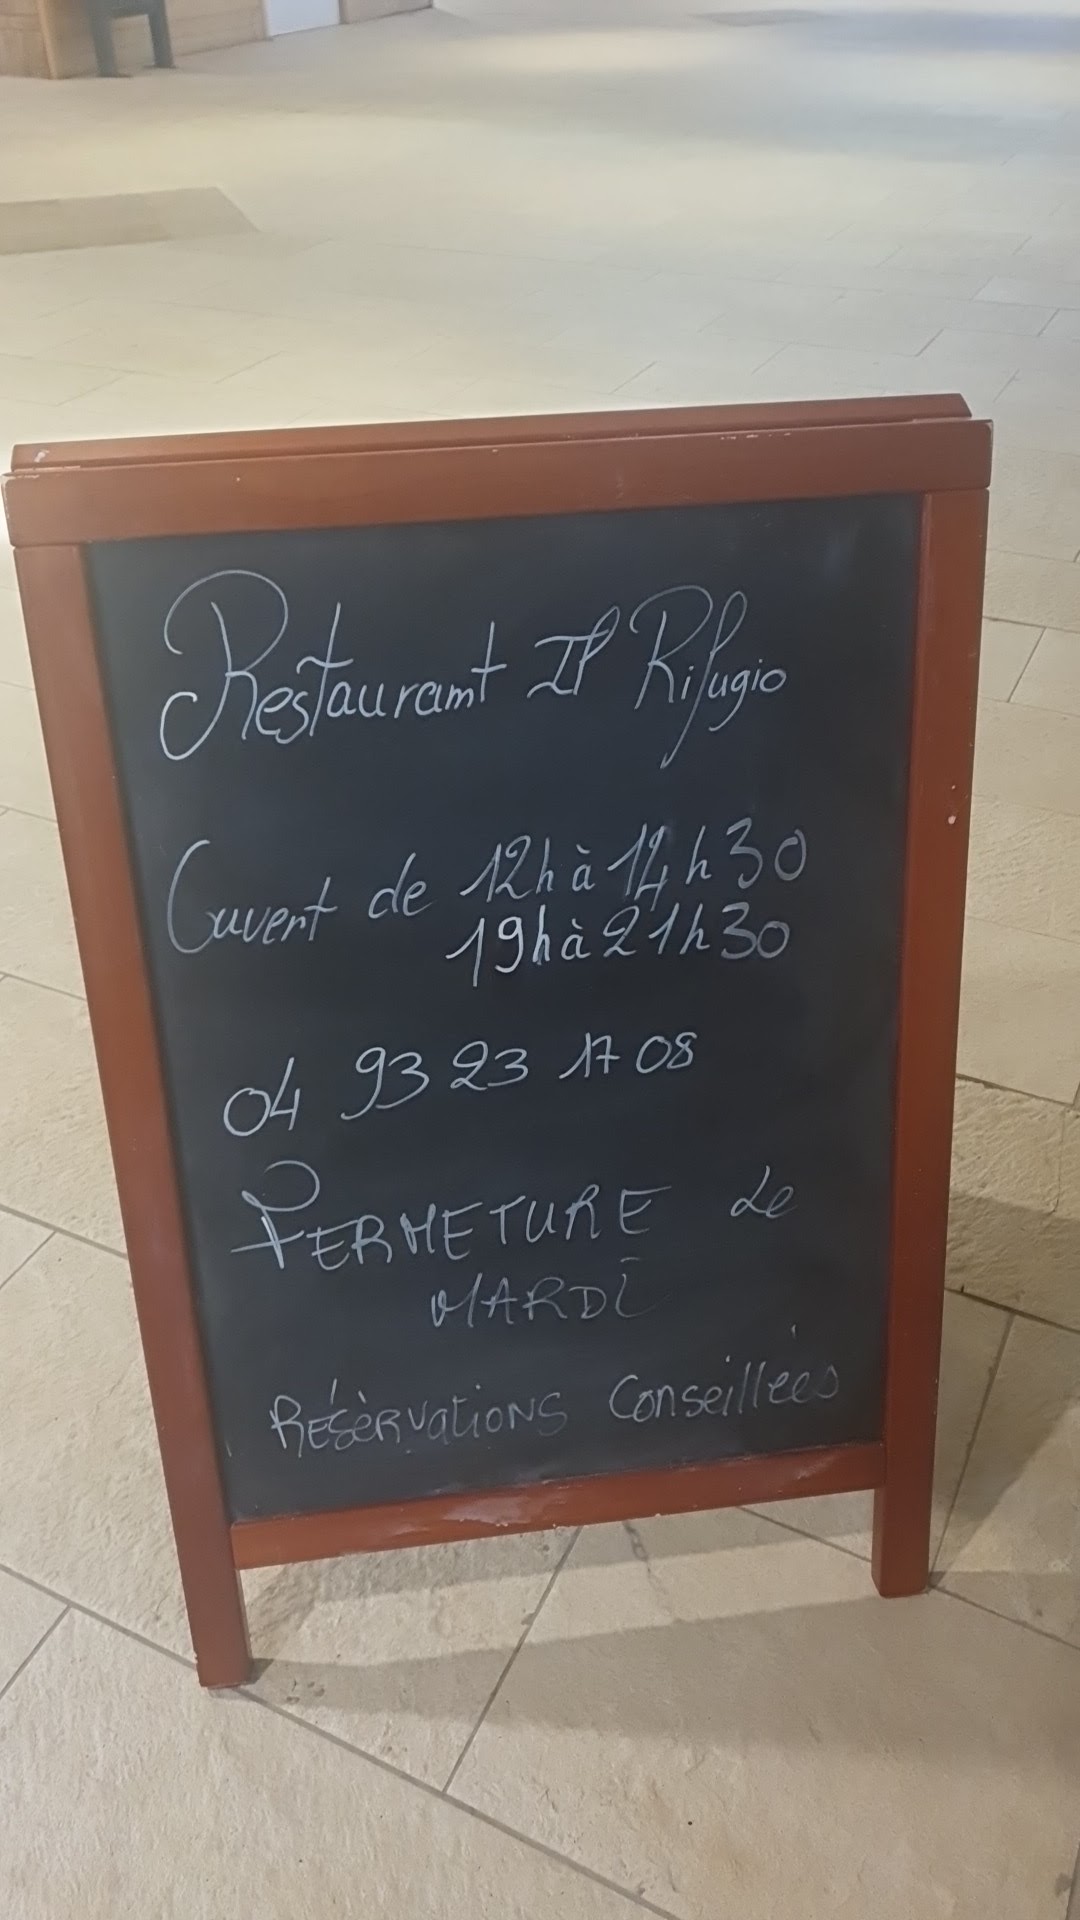 Restaurant Il Rifugio
Ouvert de 12h à 14h30
19h à 21h30
04 93 23 17 08
FERMETURE Le
MARDI
RÉSÈRVATIONS Conseillées